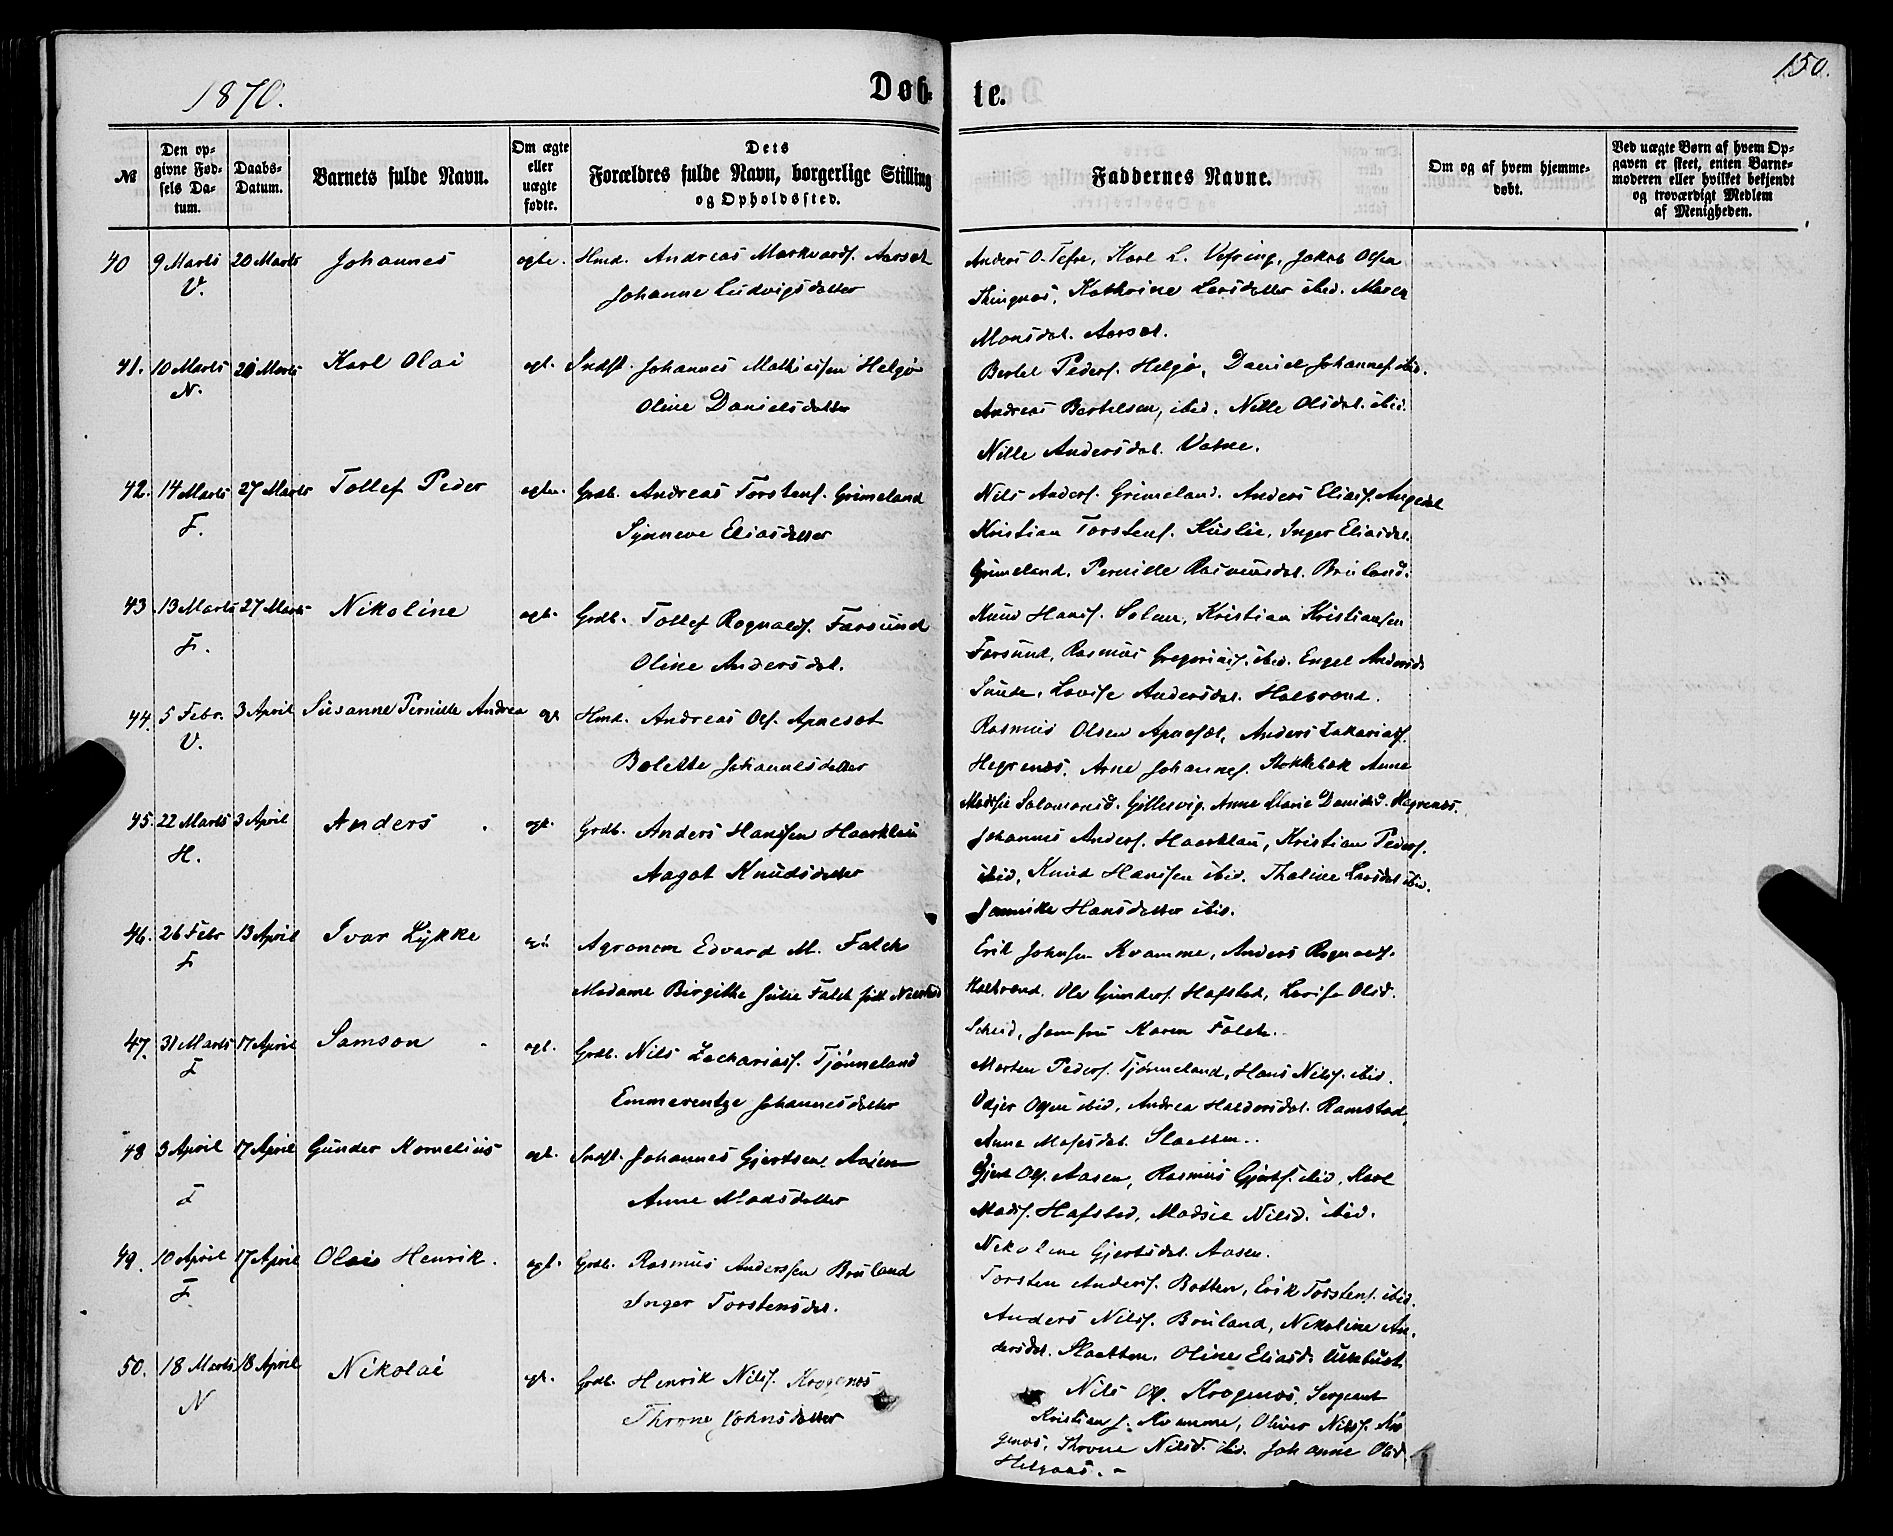 1870.
Døb-
te.
150.
№
Den op-
givne Fød-
sels Da-
tum.
Daabs-
Datum.
Barnets fulde Navn.
Om ægte
eller
uægte
fødte.
Dets
Forældres fulde Navn, borgerlige Stilling
og Opholdssted.
Faddernes Navne.
Om og af hvem hjemme-
døbt.
Ved uægte Børn af hvem Op-
gaven er skeet, enten Barne-
moderen eller hvilket bekjendt
og troværdigt Medlem
af Menigheden.
40 9 Marts 20 Marts Johannes ægte. Hmd. Andreas Markvards. Aarset
V. Johanne Ludvigsdatter
Anders O. Tefre, Karl L. Vefring, Jakob Olsen
Thingnæs, Kathrine Larsdatter ibid. Maren
Monsdat. Aarset.
41. 10 Marts 20 Marts Karl Olai ægt. Indst. Johannes Mathiesen Helgø
N. Oline Danielsdatter
Bertel Peders. Helgø, Daniel Johannes. ibid.
Andreas Bertelsen, ibid. Nille Olsdat. ibid.
Nille Andersdat. Vatne.
42. 14 Marts 27 Marts Tollef Peder ægte. Grdb. Andreas Torstens. Grimeland
F. Synneve Eliasdatter
Nils Anders. Grimeland. Anders Elias. Angedal
Kristian Torstens. Kuslie, Inger Eliasdat.
Grimeland. Pernille Rasmusdat. Bruland.
43. 13 Marts 27 Marts Nikoline ægt. Grdb. Tollef Ragnvalds. Farsund
F. Oline Andersdat.
Knud Hans. Solem, Kristian Kristiansen
Farsund, Rasmus Gregorius. ibid. Engel Andersd.
Sunde, Lovise Andersdat. Halbrend.
44. 5 Febr. 3 April Susanne Pernille Andrea ægt. Hmd. Andreas Ols. Apneset
V. Bolette Johannesdatter
Rasmus Olsen Apneset, Anders Zakarias.
Hegrenes, Arne Johannes. Stokkebak Anne
Madsie Salomonsd. Gillesvig. Anne Marie Danielsd. Hegrenæs.
45. 22 Marts 3 April Anders ægt. Grdb. Anders Hansen Haarklau
H. Aagot Knudsdatter
Johannes Anders. Haarklau, Kristian Peders.
ibid, Knud Hansen ibid. Thaline Larsdat. ibid.
Jannike Hansdatter ibid.
46. 26 Febr 13 April Ivar Lykke ægt. Agronom Edvard M. Falch
F Madame Birgitte Julie Falch født
Erik Johnsen Kvamme, Anders Ragnvalds.
Halbrend. Ole Gunders. Hafstad, Lovise Olsd.
Scheid, Jomfru Karen Falch.
47. 31 Marts 17 April Samson ægt. Grdb. Nils Zacharias. Tjønneland
F Emmerentze Johannesdatter
Morten Peders. Tjønneland, Hans Nils. ibid.
Odger Olsen ibid, Andrea Haldorsdat. Ramstad,
Anne Mosesdat. Slaatten.
48 3 April 17 April Gunder Kornelius ægt. Indst. Johannes Gjertsen Aasen
F Anne Madsdatter
Gjert Ols. Aasen, Rasmus Gjerts. ibid, Karl
Mads. Hafstad, Madsie Nilsd. ibid.
Nikoline Gjertsdat. Aasen.
49. 10 April 17 April Olais Henrik. ægt. Grdb. Rasmus Anderssen Bruland
F. Inger Torstensdat.
Torsten Anders. Botten, Erik Torstens. ibid.
Anders Nils. Bruland, Nikoline An-
dersdat. Slaatten. Oline Eliasd.
50. 18 Marts 18 April Nikolai ægt. Grdb. Henrik Nils. Krogenæs
N Throne Johnsdatter
Nils Ols. Krogenæs, Sergeant
Kristian J. Kvamme, Oliver Nils. Kro-
genæs, Throne Nilsd. ibid. Johanne Olsd.
Helgaas.